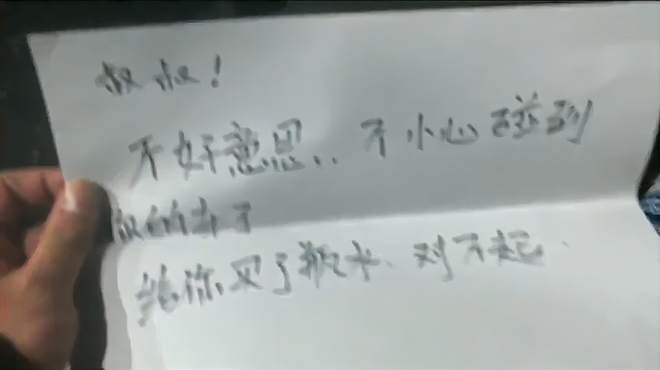 叔叔!
不好意思.. 不小心碰到
你的车了
给你买了瓶水. 对不起.